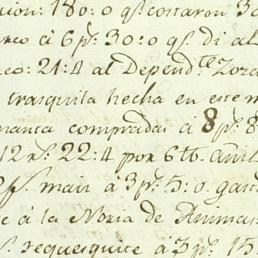 cion: 180: o qᵉ costaron 30
rreo à 6 pˢ: 30: o qᵉ di al
eo: 21: 4 al Dependᵗᵉ Zora
trasquila hecha en este m
manta compradas à 8 pˢ 8
12 rˢ. 22: 4 por 6 tb. añil
pˢ. maiz à 3 pˢ: 15: o gast
e à la Noria de Animas
s. requesquite à 3 pˢ. 15: